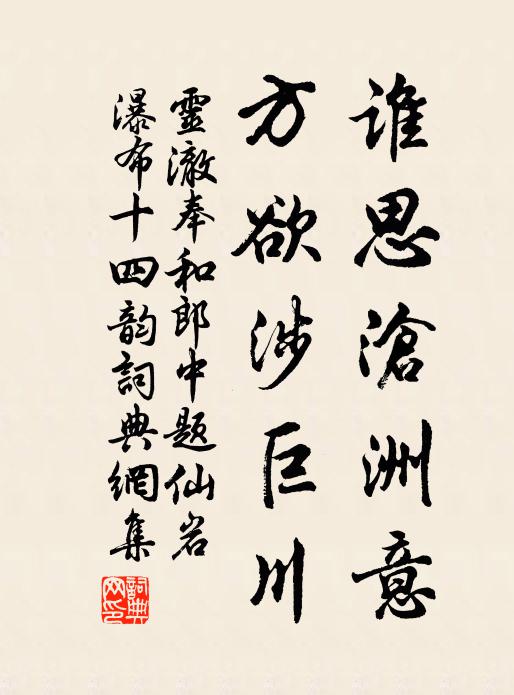 誰思滄洲意
方欲涉巨川
靈澈奉和郎中題仙岩
瀑布十四韵詞典網集
詞典
网印